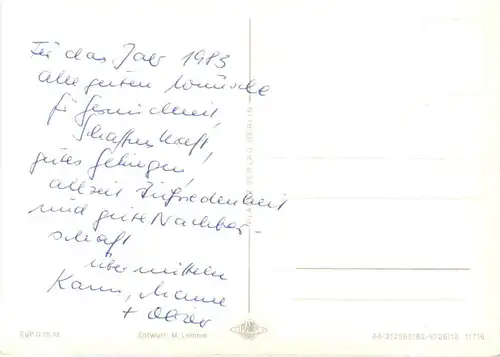 Für das Jahr 1983
alle guten Wünsche
für Gesundheit,
Schaffenskraft,
gutes Gelingen,
allzeit Zufriedenheit
und gute Nachbar-
schaft
übermitteln
PLANET VERLAG BERLIN
PLANET
EVP 0,15 M
Entwurf: M. Lemme
11716